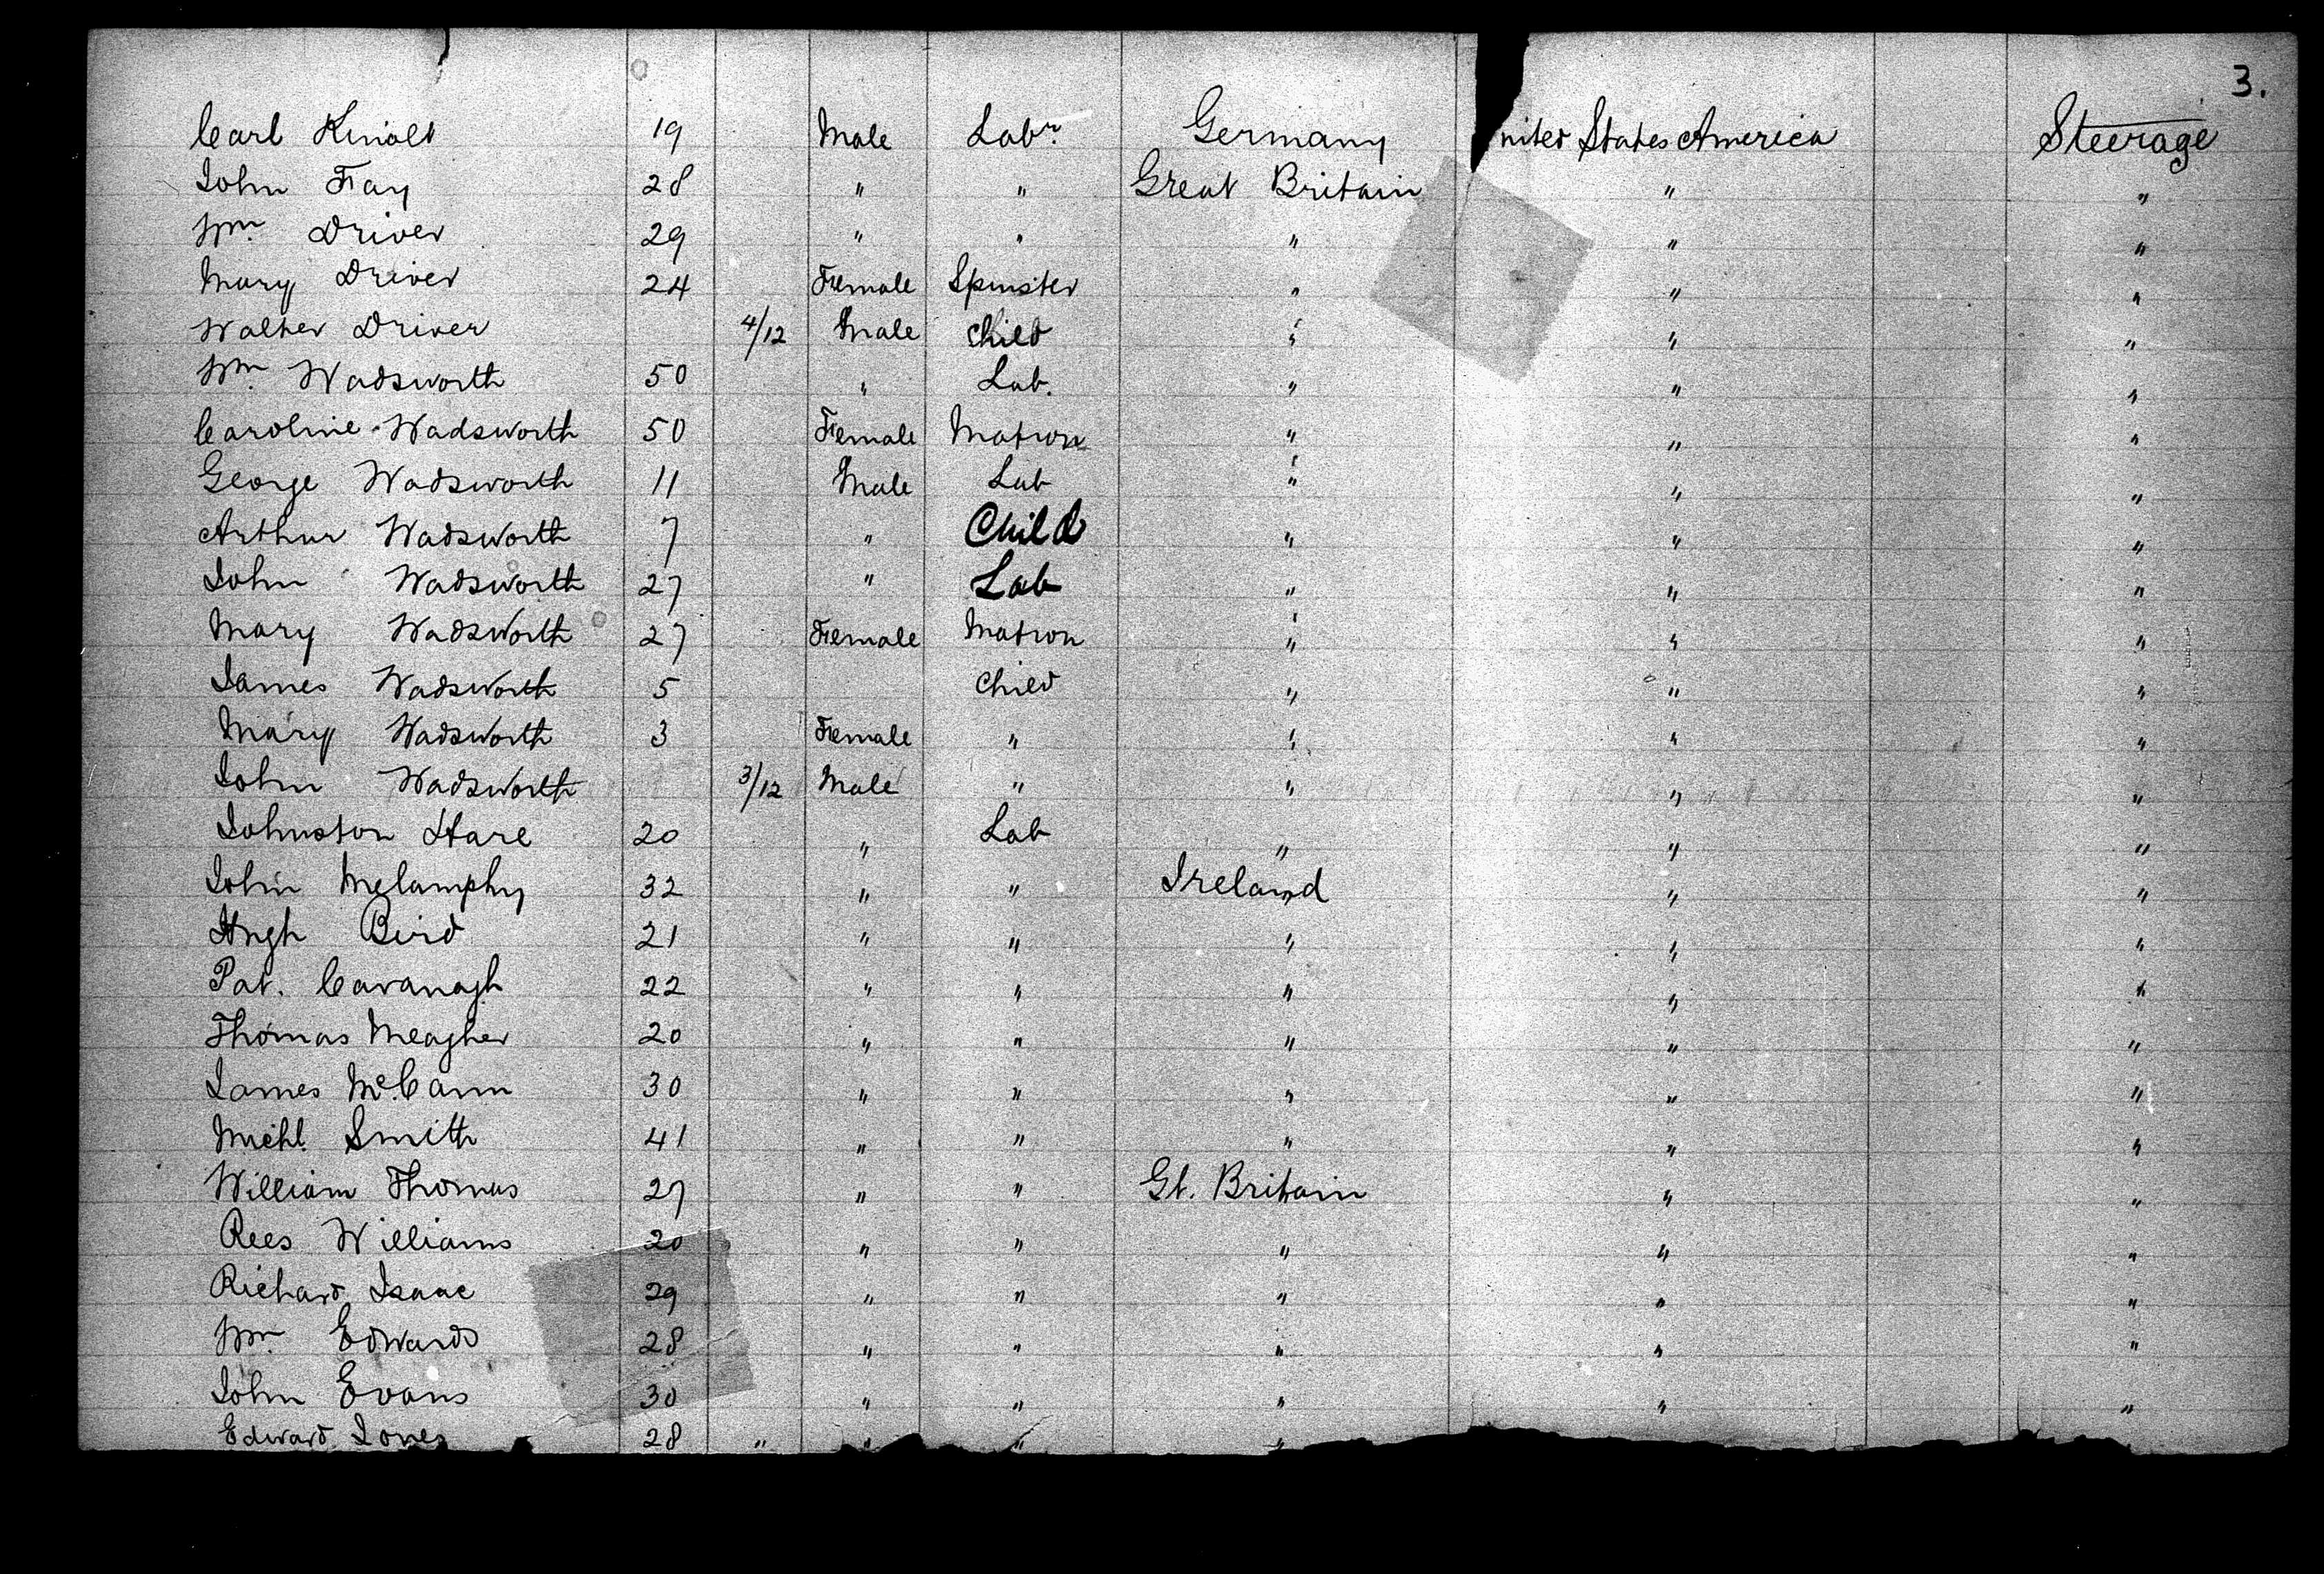 3.
Carl Kinalt 19 Male Labr. Germany nited States America Steerage
John Fay 28 " " Great Britain " "
Wm. Driver 29 " " " " "
Mary Driver 24 Female Spinster " " "
Walter Driver 4/12 Male Child " " "
Wm. Wadsworth 50 " Lab. " " "
Caroline Wadsworth 50 Female Matron " " "
George Wadsworth 11 Male Lab " " "
Arthur Wadsworth 7 " Child " " "
John Wadsworth 27 " Lab " " "
Mary Wadsworth 27 Female Matron " " "
James Wadsworth 5 Child " " "
Mary Wadsworth 3 Female " " " "
John Wadsworth 3/12 Male " " " "
Johnston Hare 20 " Lab " " "
John Mclamphy 32 " " Ireland " "
Hugh Bird 21 " " " " "
Pat. Cavanagh 22 " " " " "
Thomas Meagher 20 " " " " "
James McCann 30 " " " " "
Michl. Smith 41 " " " " "
William Thomas 27 " " Gt. Britain " "
Rees Williams 20 " " " " "
Richard Isaac 29 " " " " "
Wm. Edwards 28 " " " " "
John Evans 30 " " " " "
Edward Jones 28 " " " "